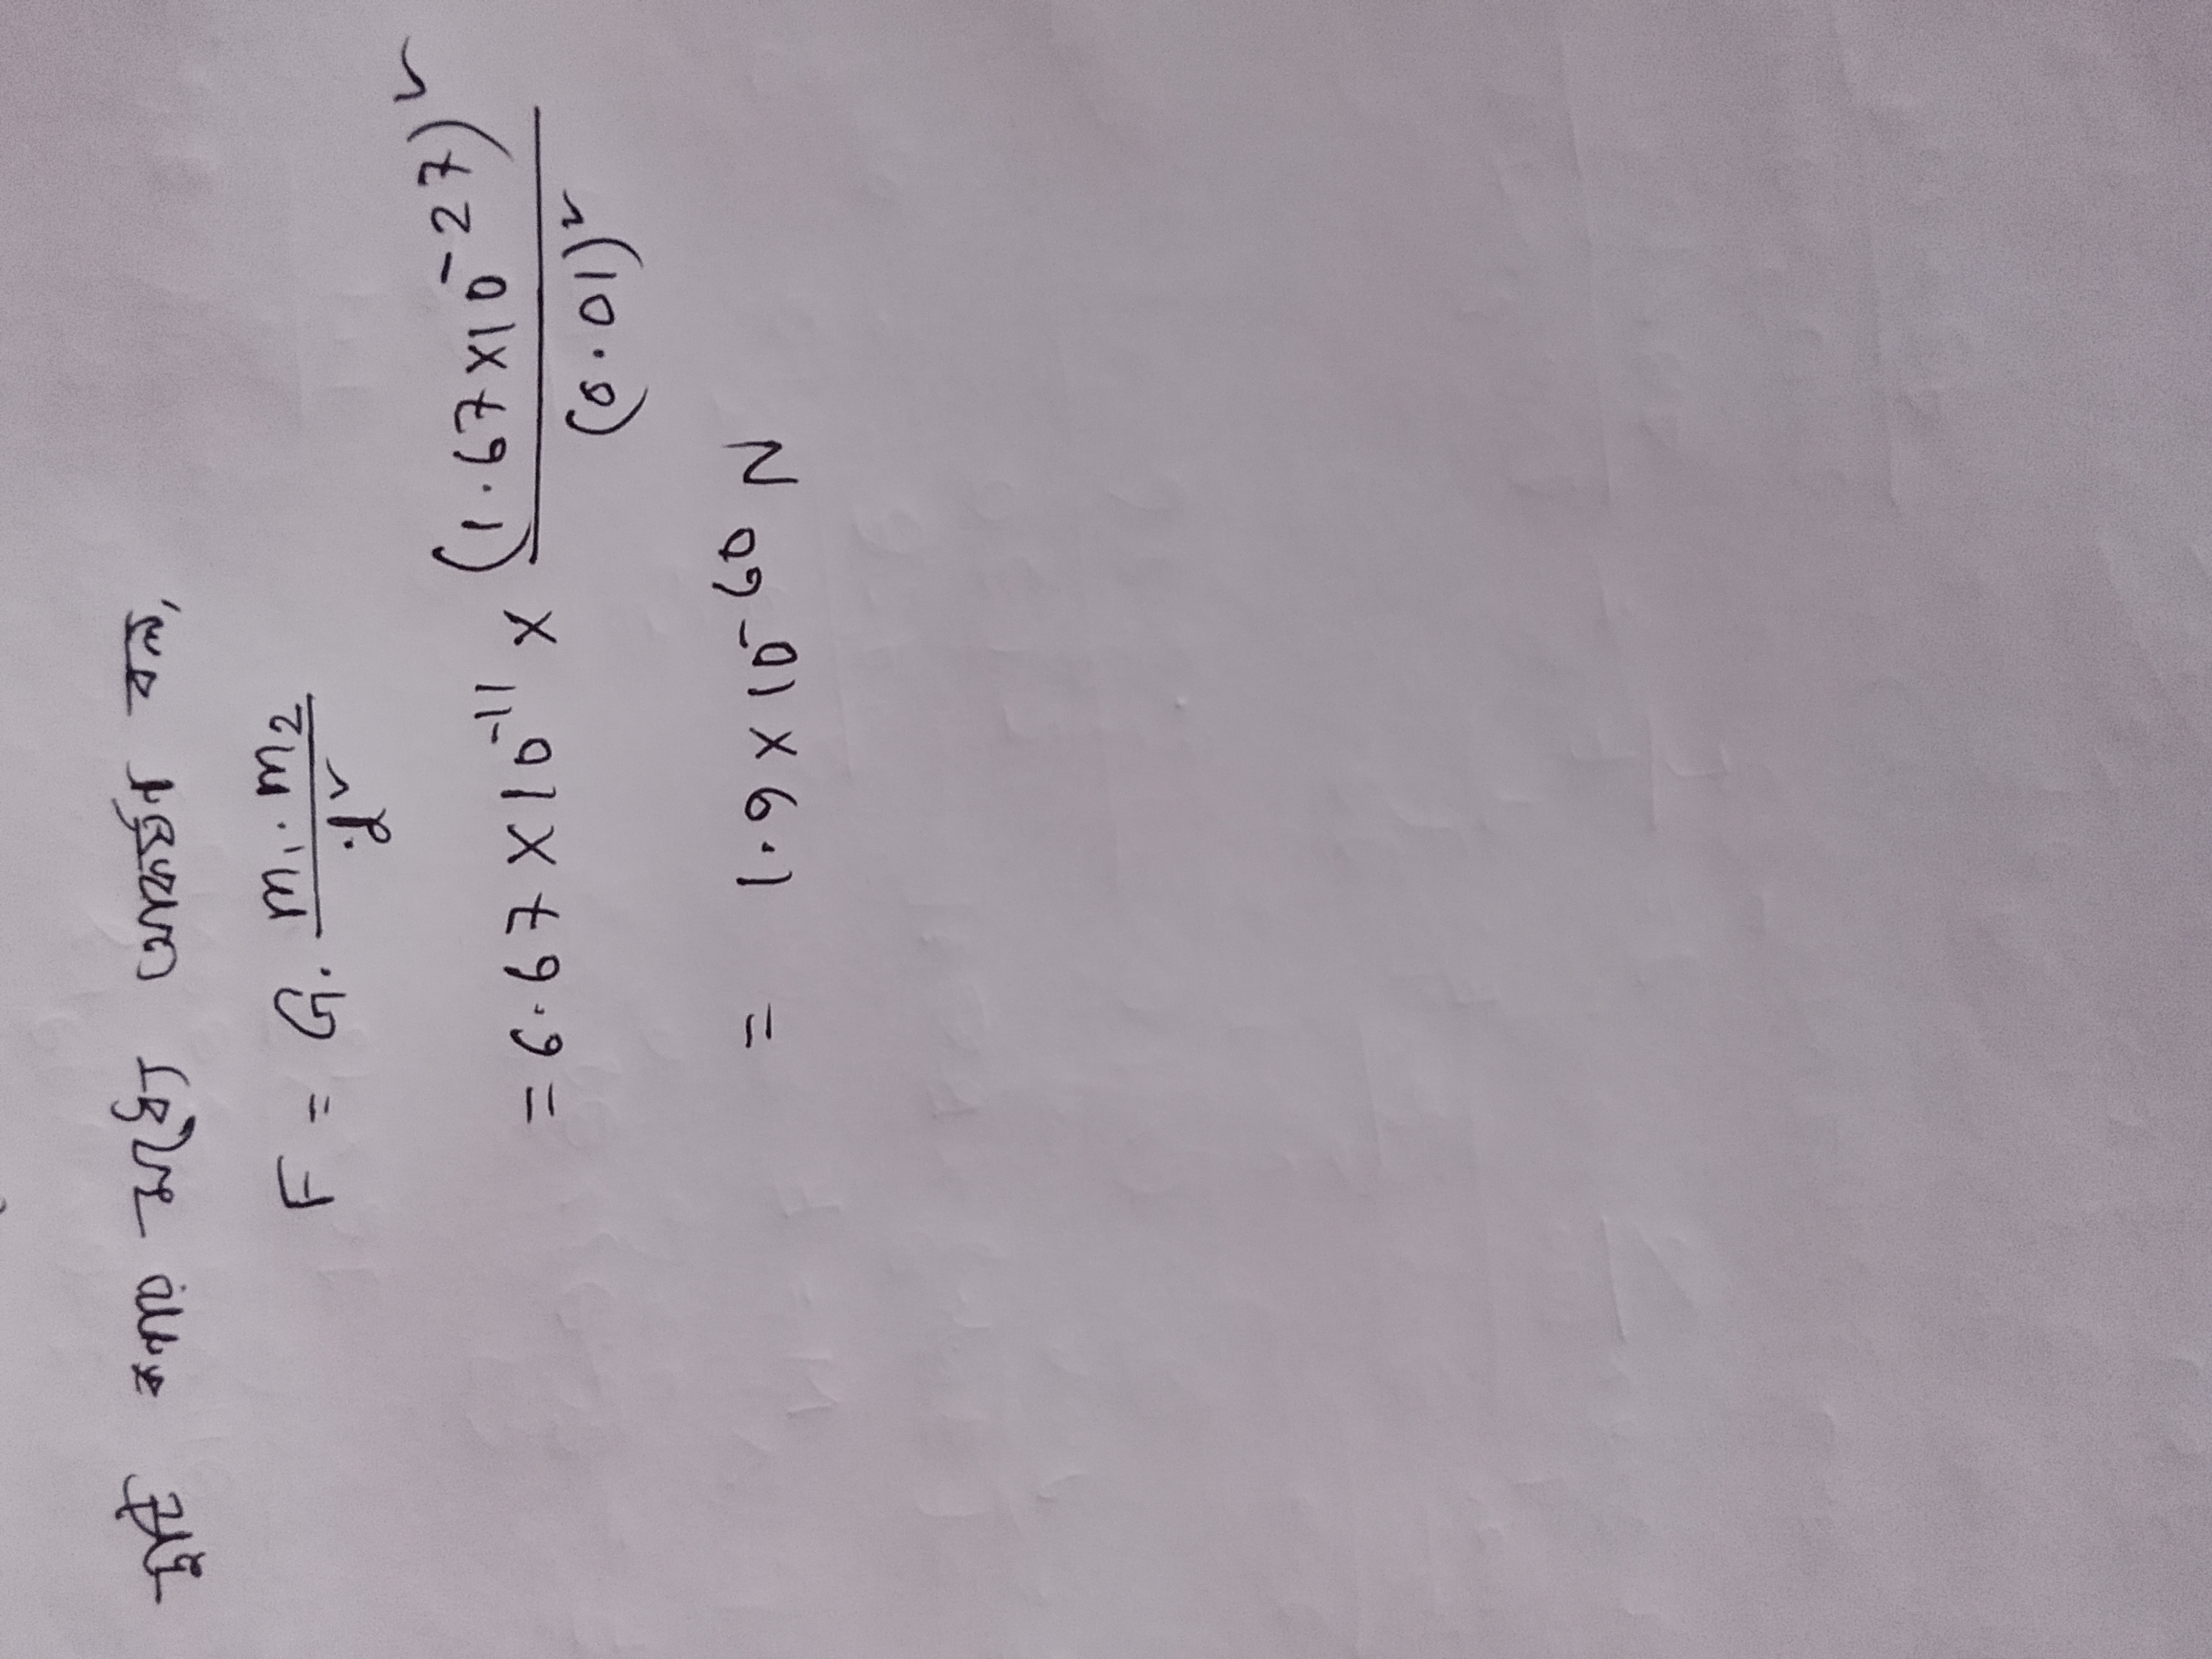 দুটি কণার মধ্যে মহাকর্ষ বল,
F = G. m₁.m₂ / d²
= 6.67 × 10⁻¹¹ × (1.67 × 10⁻²⁷)² / (0.01)²
= 1.9 × 10⁻⁶⁰ N